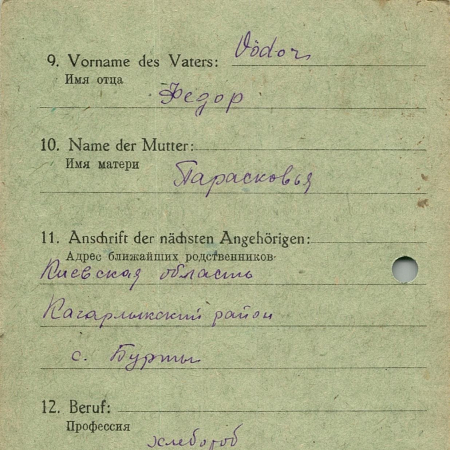 9. Vorname des Vaters: Vödor
Имя отца
Федор
10. Name der Mutter:
Имя матери
Парасковья
11. Anschrift der nächsten Angehörigen:
Адрес ближайших родственников
Киевская область
Кагарлыкский район
с. Бурты
12. Beruf:
Профессия
хлебороб